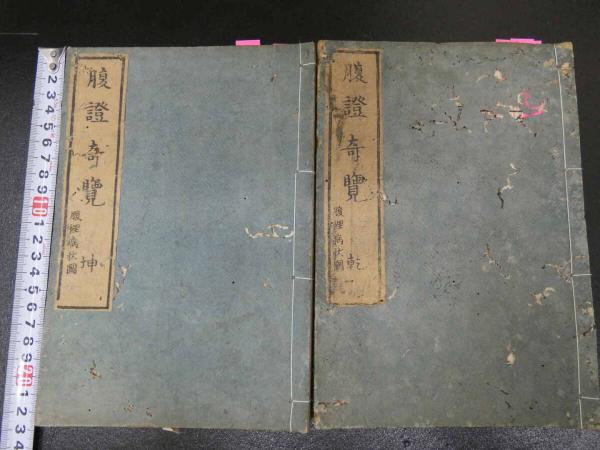 腹證奇覽
腹裡病状圖
坤
腹證奇覽
腹裡病状圖
乾
2 3 4 5 6 7 8 9 10 1 2 3 4 5 6 7 8 9 20 1 2 3 4